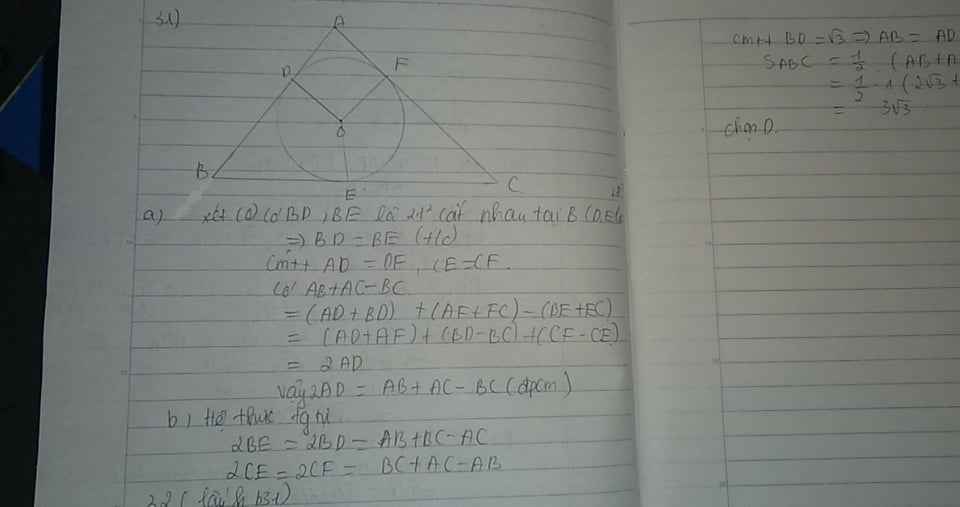 31)
A
D
F
O
B
E
C
a) xét (O) có BD, BE là 2t² cắt nhau tại B (D,E
=> BD = BE (t/c)
cmtt AD = DF, CE=CF.
Có AB+AC-BC
= (AD+BD) + (AF+FC) - (BE+EC)
= (AD+AF) + (BD-BC) + (CF-CE)
= 2AD
Vậy 2AD = AB+AC-BC (đpcm)
b) Hệ thức tg tự
2BE = 2BD = AB+BC-AC
2CE = 2CF = BC+AC-AB
32 (
cmtt BD = √3 => AB = AD
SABC = 1/2 (AB+A
= 1/2 . 1 (2√3 +
= 3√3
Chọn D.